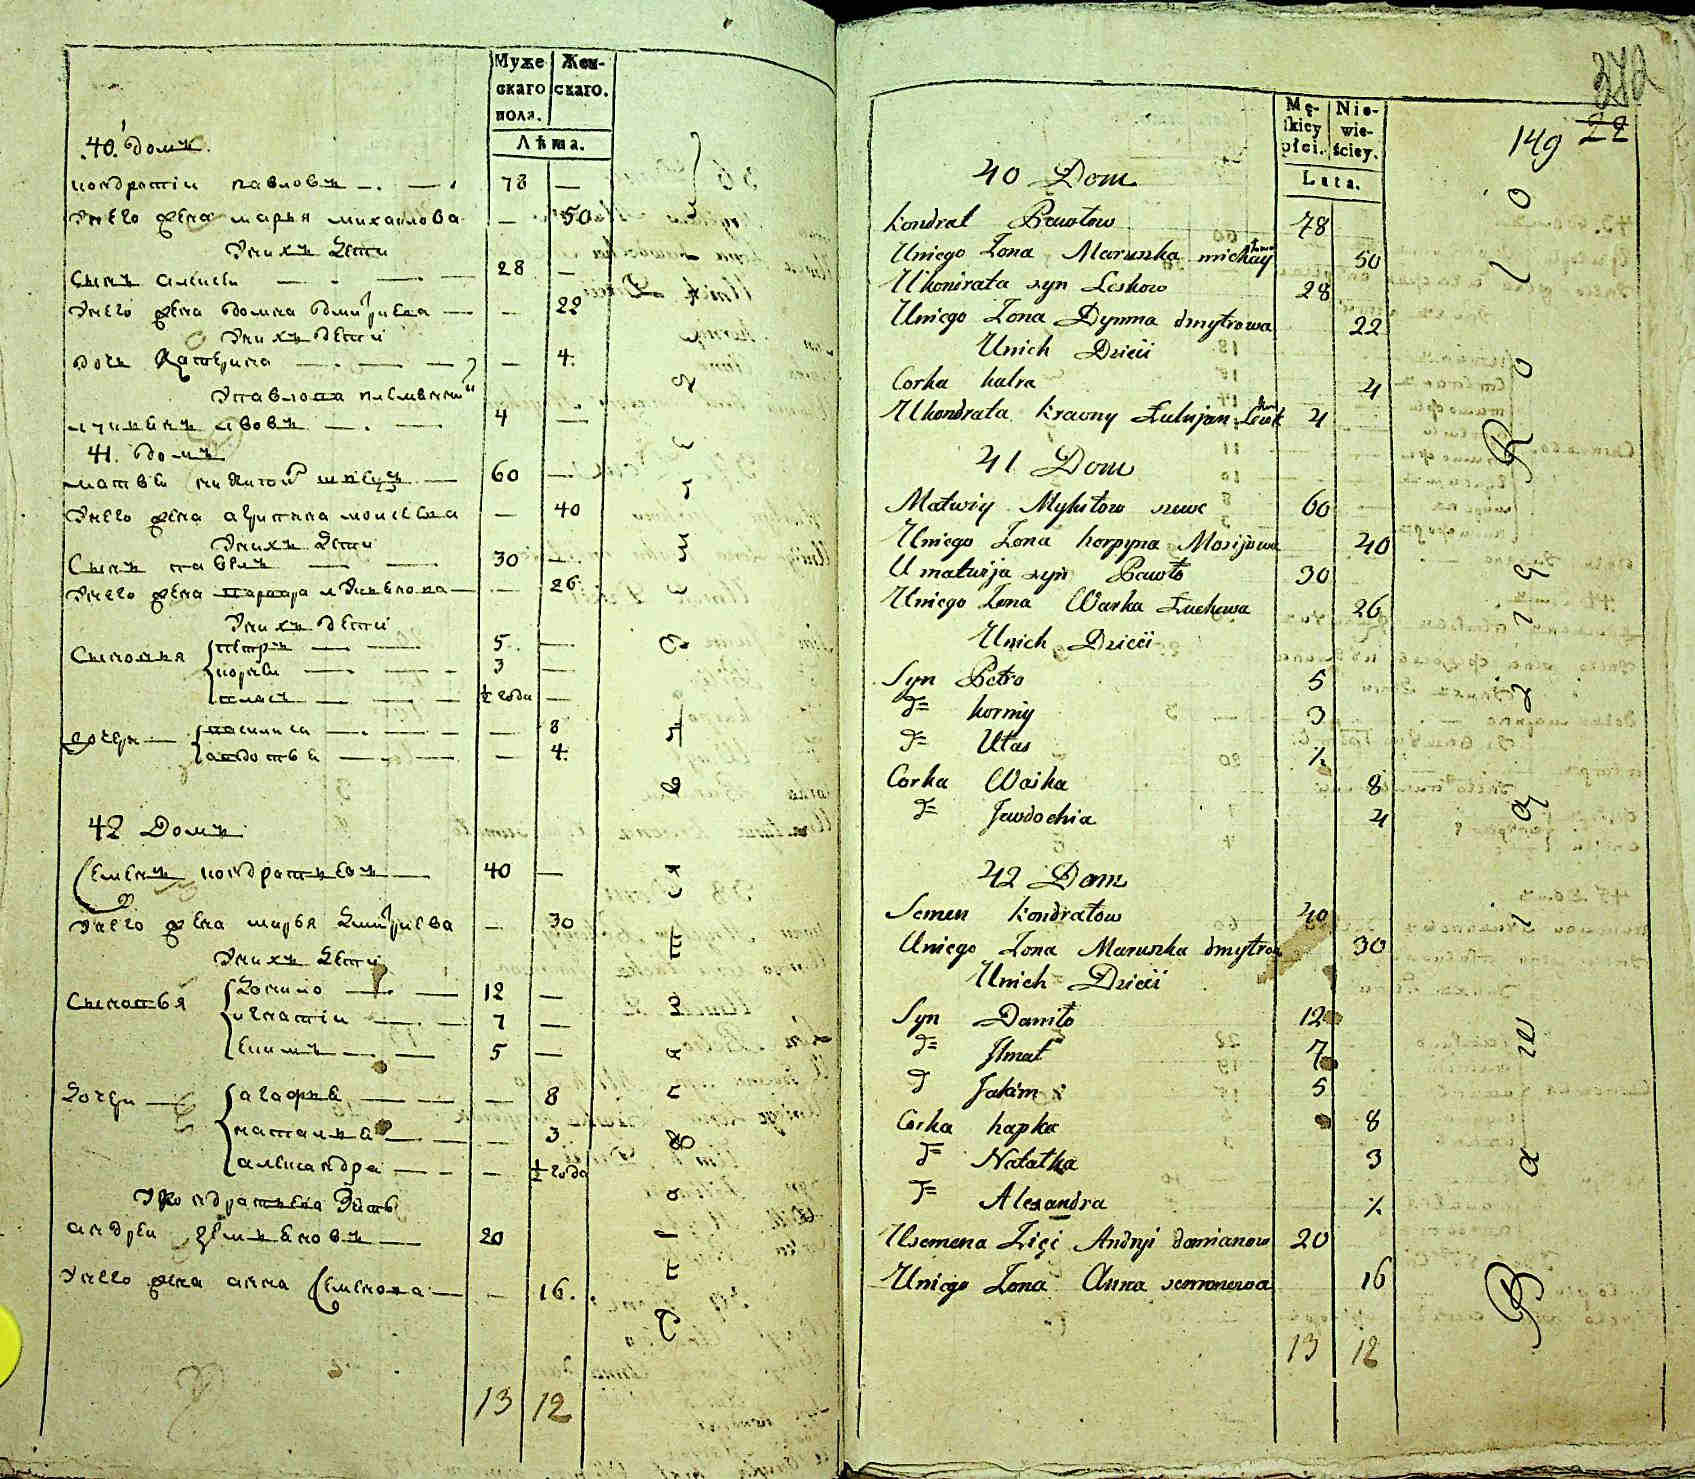 Муже
скаго
пола.
Жен-
скаго.
Лѣта.
.40. Домъ.
кондратiи павловъ 78
Унего жена марья михаилова 50
Унихъ Дети
Сынъ алеѯѣи 28
Унего жена домна дмитриева 22
Унихъ дети
дочь Катерина 4.
4
41. Домъ
матвѣи никитовъ швецъ 60
Унего жена агрипина моисѣева 40
Унихъ Дети
Сынъ павелъ 30
Унего жена варвара 26
Унихъ дети
Сыновья петръ 5
корнѣи 3
власъ ½ года
дочери василиса 8
авдотья 4.
42 Домъ
Семенъ кондратьевъ 40
Унего жена марья Дмитриева 30
Унихъ Дети
Сыновья Данило 12
игнатiи 7
Екимъ 5
Дочери агафья 8
наталья 3
александра ½ года
Укондратьева Зять
андреи демьяновъ 20
Унего жена анна Семенова 16.
13 12
272
22
149
Mę-
ſkiey
płci.
Nie-
wie-
ściey.
Lata.
40 Dom
Kondrat Pawłow 78
Uniego Żona Maruszka michayłowa 50
Ukondrata syn Leskow 28
Uniego Żona Dymna dmytrowa 22
Unich Dzieci
Corka katra 4
Ukondrata krewny 4
41 Dom
Matwiy Mykitow szwec 60
Uniego Żona horpyna Mosijowa 40
U matwija syn Pawło 30
Uniego Żona Warka Łuckowa 26
Unich Dzieci
Syn Petro 5
d= korniy 3
d= Ułas ½
Corka Waska 8
d= Jewdochia 4
42 Dom
Semen kondratow 40
Uniego Żona Maruszka dmytrowa 30
Unich Dzieci
Syn Daniło 12
d= Ihnat 7
d Jakim 5
Corka hapka 8
d= Natalka 3
d= Alexandra ½
Usemena Zięć Andryi damianow 20
Uniego Żona Anna semenowa 16
13 12